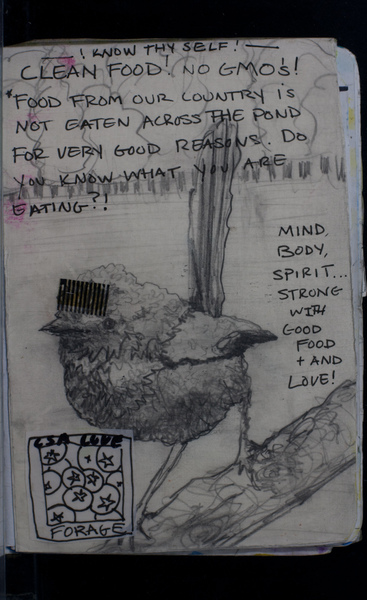 ! KNOW THY SELF !
CLEAN FOOD! NO GMOs!
*FOOD FROM OUR COUNTRY IS
NOT EATEN ACROSS THE POND
FOR VERY GOOD REASONS. DO
YOU KNOW WHAT YOU ARE
EATING?!
MIND,
BODY,
SPIRIT...
STRONG
WITH
GOOD
FOOD
+ AND
LOVE!
CSA LOVE
FORAGE